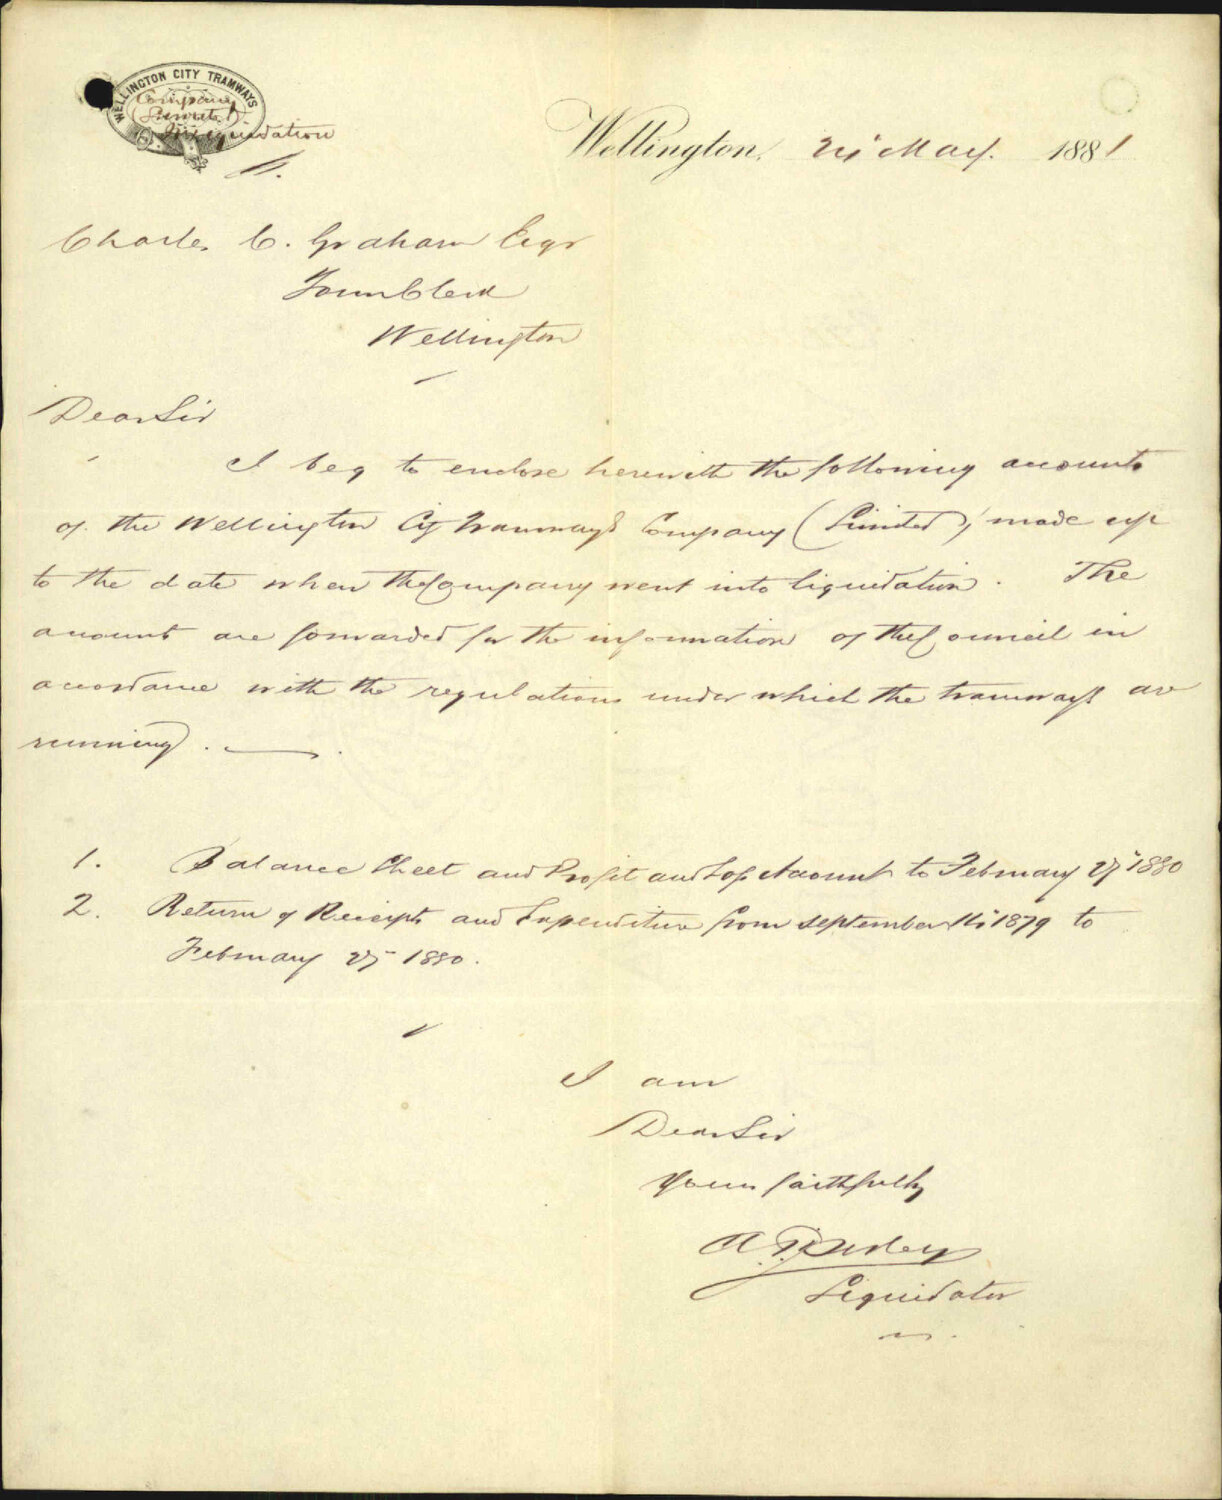 WELLINGTON CITY TRAMWAYS
Company
(Limited)
In Liquidation
Wellington, May. 1881
Charles C. Graham Esqr
Town Clerk
Wellington
Dear Sir
I beg to enclose herewith the following accounts
of the Wellington City Tramways Company (Limited) made up
to the date when the Company went into liquidation. The
accounts are forwarded for the information of the Council in
accordance with the regulations under which the tramways are
running.
1. Balance Sheet and Profit and Loss Account to February 27 1880
2. Return of Receipts and Expenditure from September 1879 to
February 27 1880.
I am
Dear Sir
Yours faithfully
Liquidator